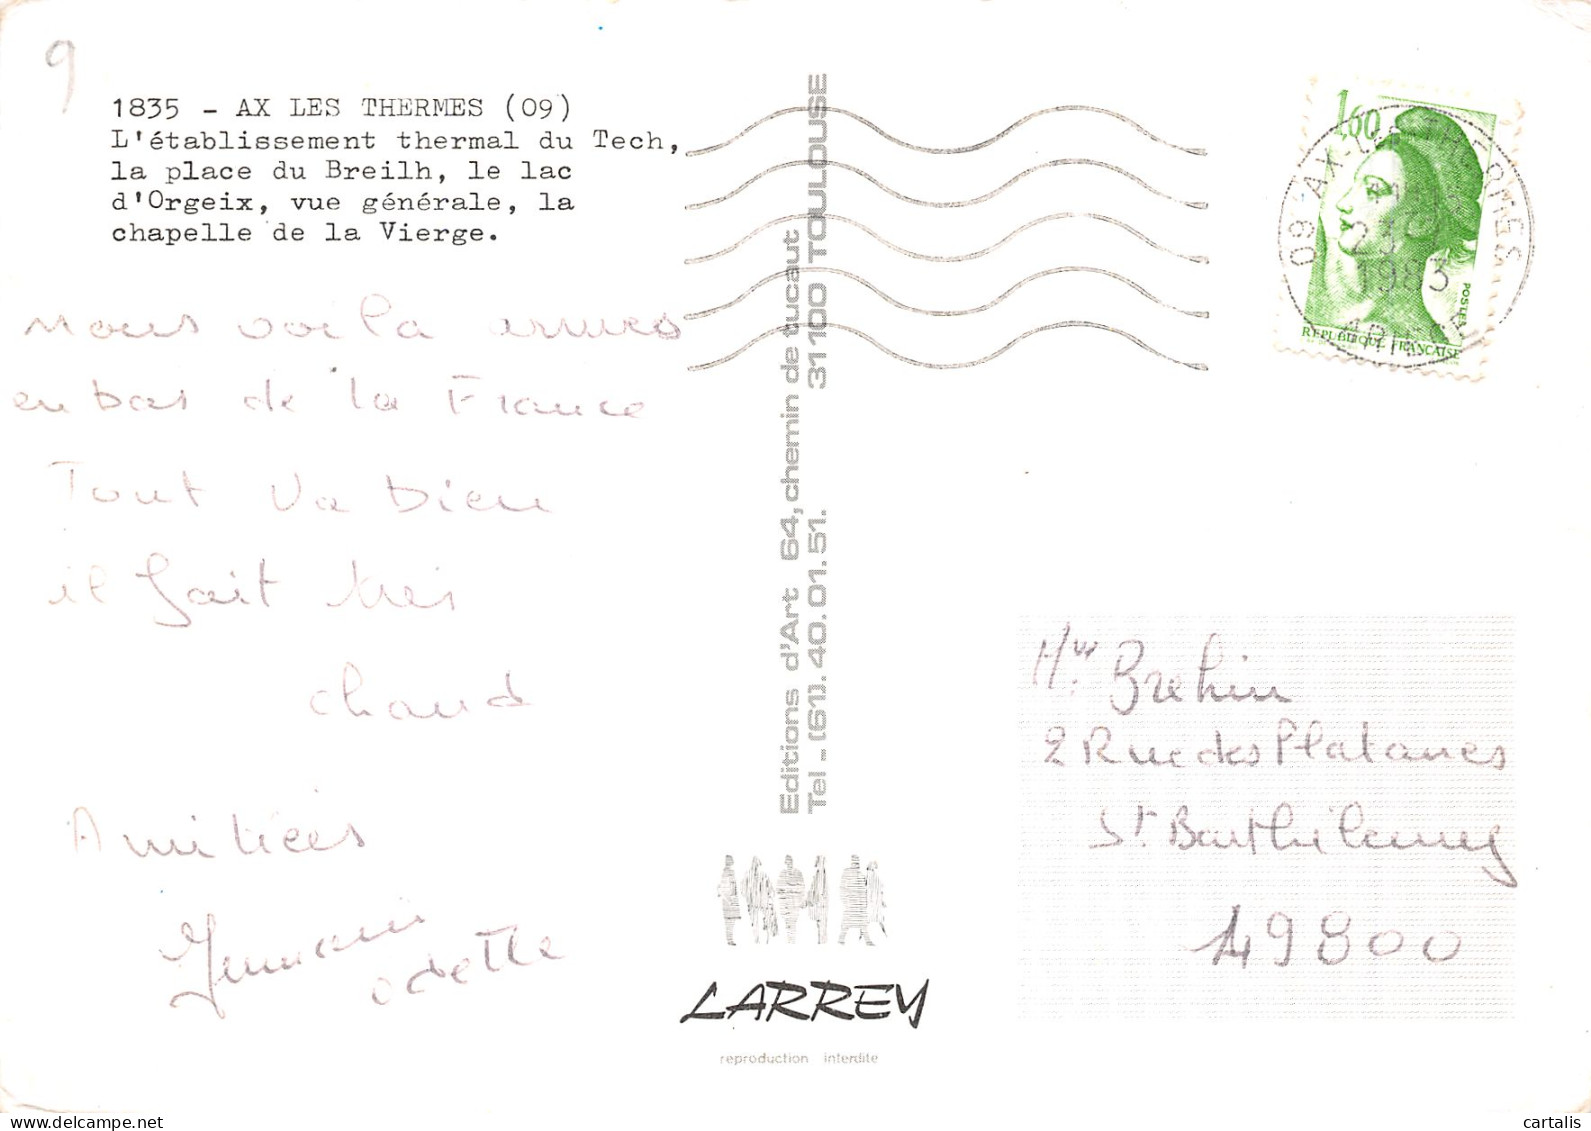 9
1835 - AX LES THERMES (09)
L'établissement thermal du Tech,
la place du Breilh, le lac
d'Orgeix, vue générale, la
chapelle de la Vierge.
nous voila arrives
en bas de la France
Tout va bien
il fait très
chaud
Amitiées
odette
Editions d'Art 64, chemin de tucaut 31100 TOULOUSE
Tel - (61). 40.01.51.
LARREY
reproduction interdite
1,60
POSTES
REPUBLIQUE FRANÇAISE
09 AX-LES-THERMES
23
1983
ARIEGE
Brehin
2 Rue des Platanes
St Barthélemy
49800
delcampe.net
cartalis